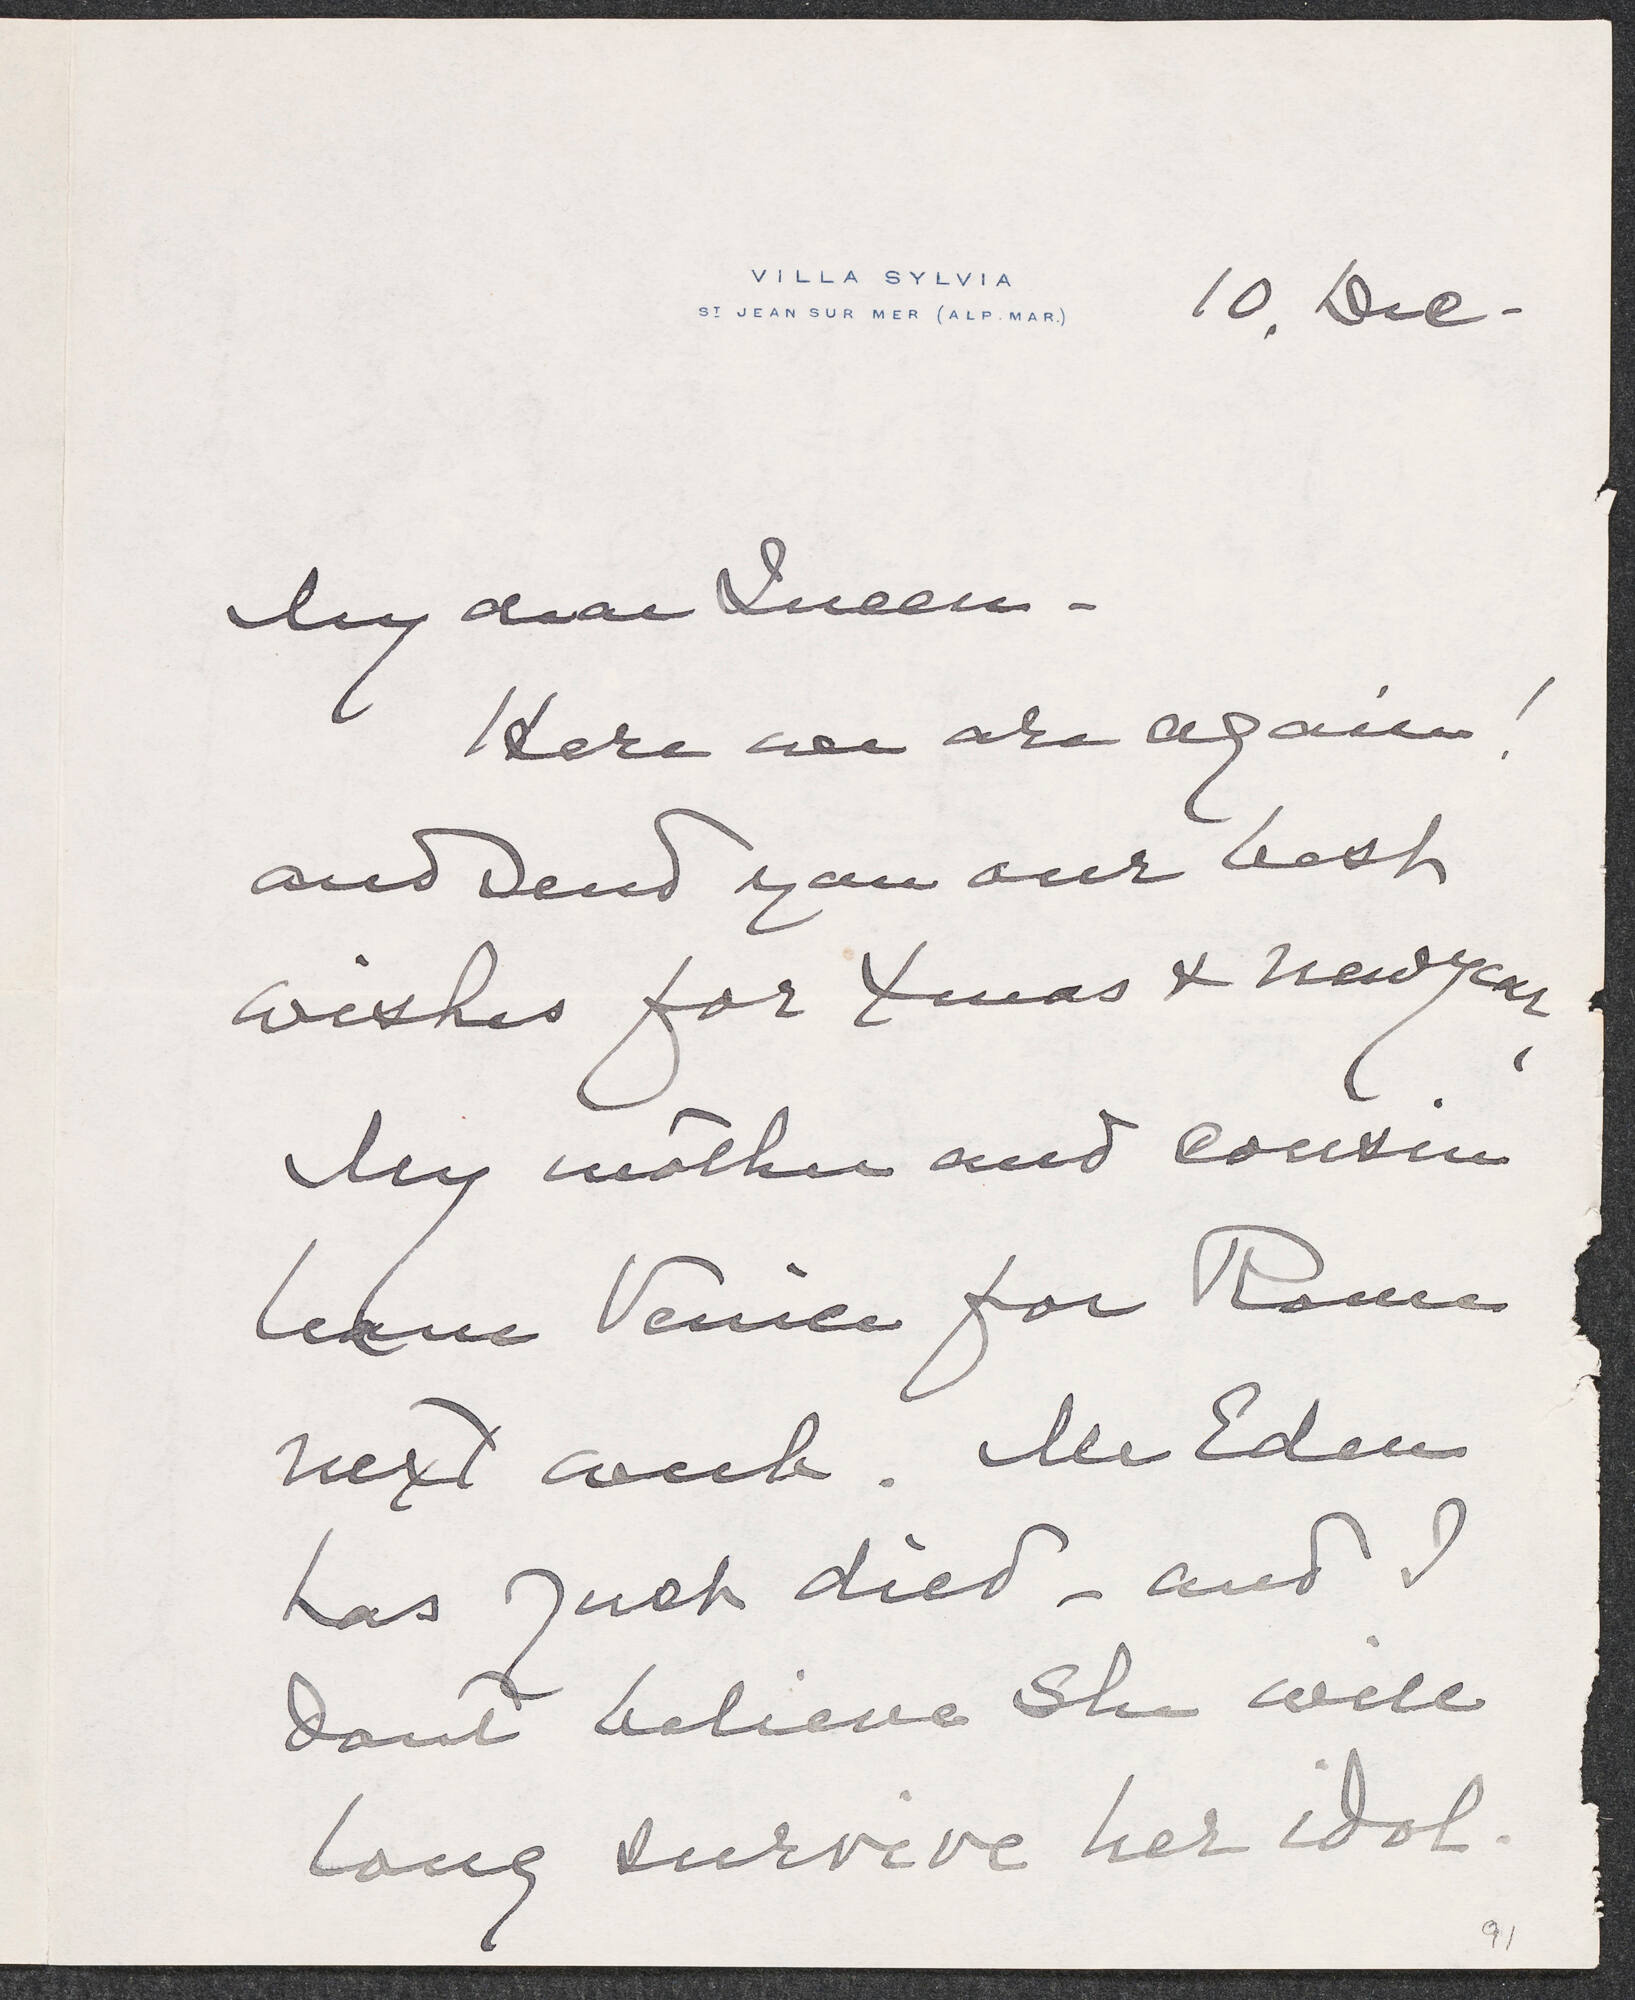 VILLA SYLVIA
ST JEAN SUR MER (ALP. MAR.)
10. Dec -
My dear Queen -
Here we are again!
and send you our best
wishes for Xmas & New year.
My mother and cousin
leave Venice for Rome
next week. Mr Eden
has just died - and I
dont believe she will
long survive her idol.
91